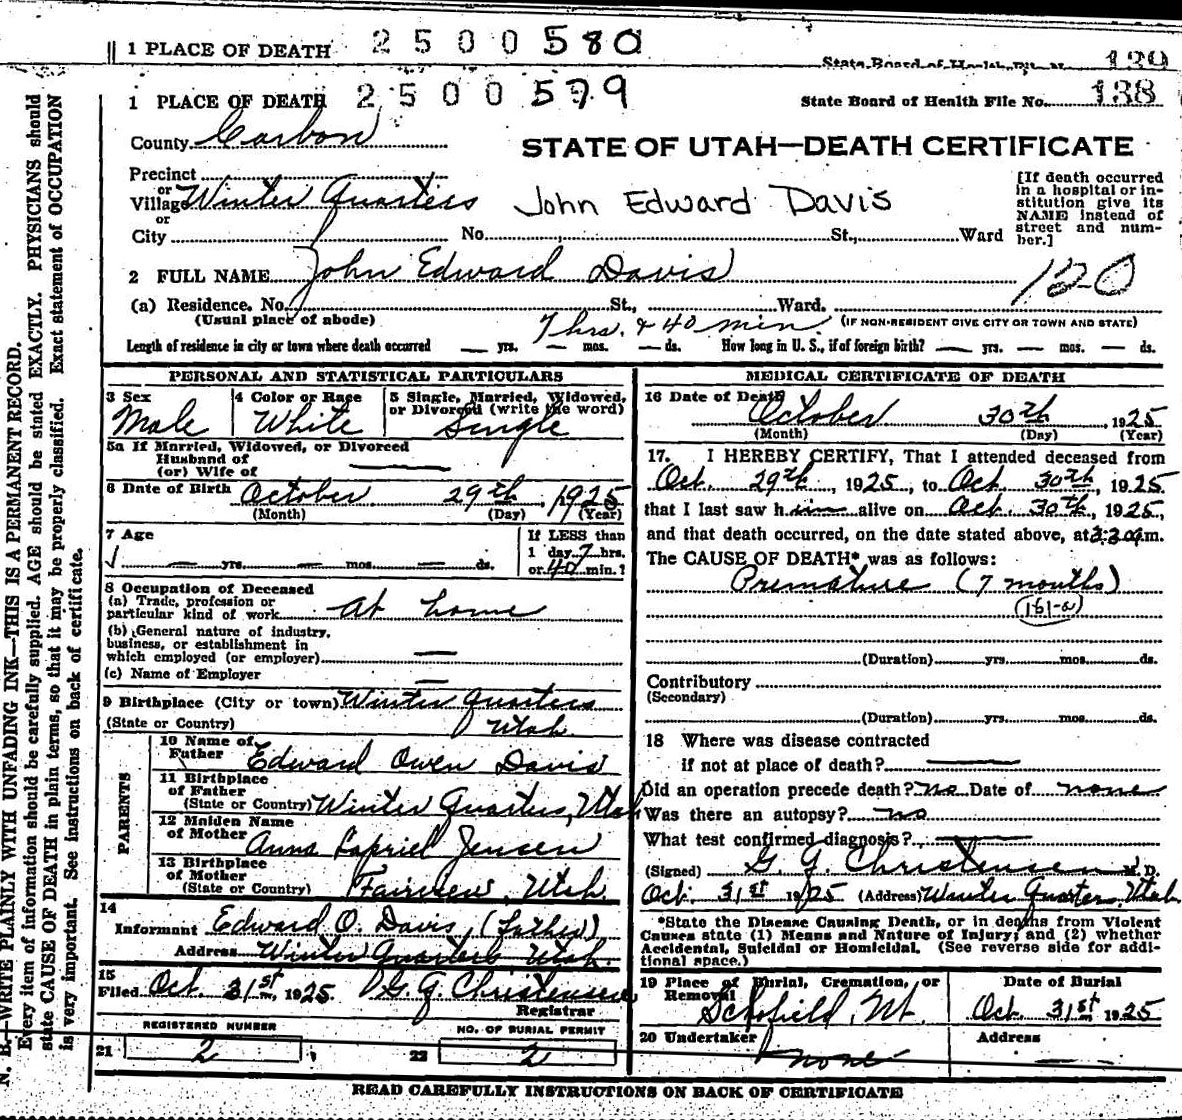 1 PLACE OF DEATH 2500580
State Board of Health File No. 139
1 PLACE OF DEATH 2500579
State Board of Health File No. 138
County Carbon
STATE OF UTAH—DEATH CERTIFICATE
Precinct
or
Village Winter Quarters John Edward Davis
or
City No. St., Ward
[If death occurred
in a hospital or in-
stitution give its
NAME instead of
street and num-
ber.]
2 FULL NAME John Edward Davis
120
(a) Residence. No. St., Ward.
(Usual place of abode) 7 hrs. & 40 min. (IF NON-RESIDENT GIVE CITY OR TOWN AND STATE)
Length of residence in city or town where death occurred — yrs. — mos. — ds. How long in U. S., if of foreign birth? — yrs. — mos. — ds.
PERSONAL AND STATISTICAL PARTICULARS
3 Sex
Male
4 Color or Race
White
5 Single, Married, Widowed,
or Divorced (write the word)
Single
5a If Married, Widowed, or Divorced
Husband of
(or) Wife of —
6 Date of Birth October 29th, 1925
(Month) (Day) (Year)
7 Age
— yrs. — mos. — ds.
If LESS than
1 day 7 hrs.
or 40 min.?
8 Occupation of Deceased
(a) Trade, profession or
particular kind of work At home
(b) General nature of industry,
business, or establishment in
which employed (or employer) —
(c) Name of Employer —
9 Birthplace (City or town) Winter Quarters
(State or Country) Utah.
PARENTS
10 Name of
Father Edward Owen Davis
11 Birthplace
of Father
(State or Country) Winter Quarters, Utah
12 Maiden Name
of Mother Anna Jensen
13 Birthplace
of Mother
(State or Country) Fairview, Utah.
14
Informant Edward O. Davis, (father)
Address Winter Quarters Utah.
15
Filed Oct. 31st, 1925. G. G. Christensen
Registrar
REGISTERED NUMBER
21 2
NO. OF BURIAL PERMIT
22 2
MEDICAL CERTIFICATE OF DEATH
16 Date of Death October 30th, 1925
(Month) (Day) (Year)
17. I HEREBY CERTIFY, That I attended deceased from
Oct. 29th, 1925, to Oct. 30th, 1925.
that I last saw him alive on Oct. 30th, 1925,
and that death occurred, on the date stated above, at m.
The CAUSE OF DEATH* was as follows:
Premature (7 months)
(161-a)
(Duration) yrs. mos. ds.
Contributory
(Secondary)
(Duration) yrs. mos. ds.
18 Where was disease contracted
if not at place of death? —
Did an operation precede death? no Date of none
Was there an autopsy? no
What test confirmed diagnosis? —
(Signed) G. G. Christensen M. D.
Oct. 31st 1925 (Address) Winter Quarters, Utah
*State the Disease Causing Death, or in deaths from Violent
Causes state (1) Means and Nature of Injury; and (2) whether
Accidental, Suicidal or Homicidal. (See reverse side for addi-
tional space.)
19 Place of Burial, Cremation, or
Removal
Scofield, Ut.
Date of Burial
Oct. 31st 1925
20 Undertaker
none
Address
—
READ CAREFULLY INSTRUCTIONS ON BACK OF CERTIFICATE
N. B.—WRITE PLAINLY WITH UNFADING INK—THIS IS A PERMANENT RECORD.
Every item of information should be carefully supplied. AGE should be stated EXACTLY. PHYSICIANS should
state CAUSE OF DEATH in plain terms, so that it may be properly classified. Exact statement of OCCUPATION
is very important. See instructions on back of certificate.